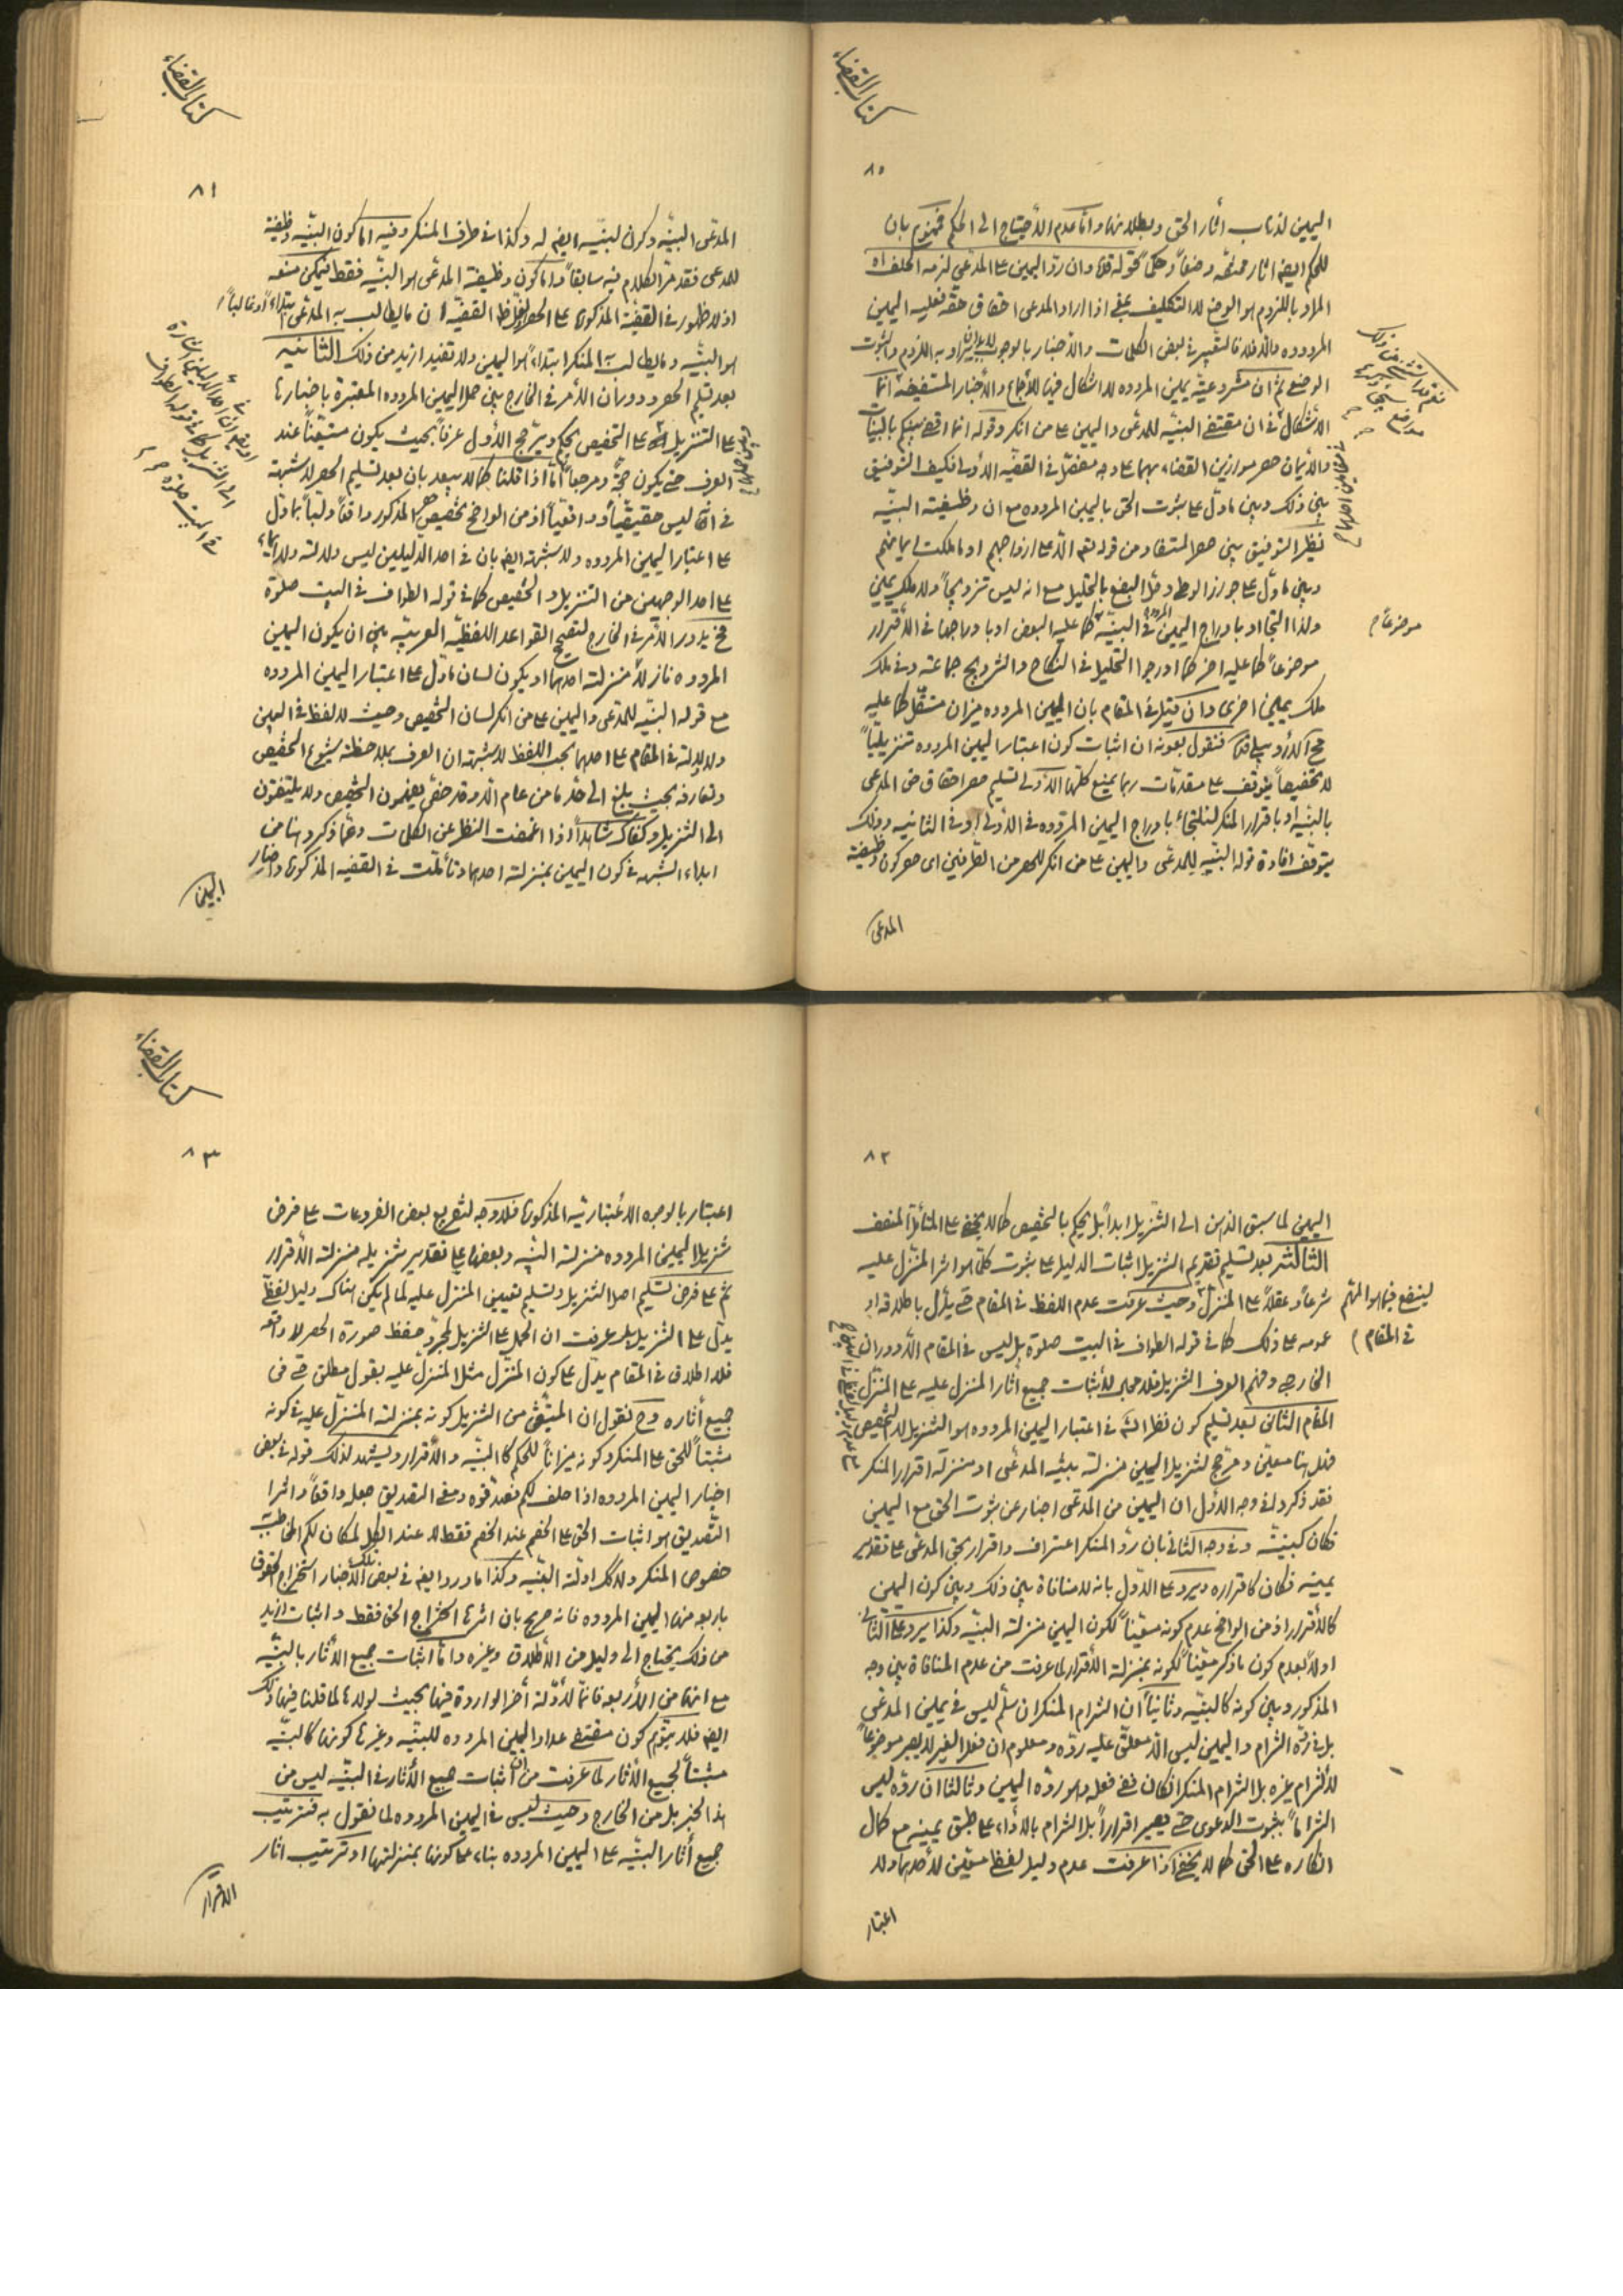 كتاب القضاء
٨٠
اليمين لذهاب آثار الحق وبطلانها واما عدم الاحتياج الى الحكم فمجزوم بان
للحكم ايضا آثار وضعاً وحكماً قوله وان ردّ اليمين على المدعي لزمه الحلف اه
المراد باللزوم هو الوضع لا التكليف يعني اذا اراد المدعي احقاق حقه فعليه اليمين
المردوده والا فلا فالتعبير في بعض الكلمات والاخبار بالوجوب يراد به اللزوم والثبوت
الوضعي ثم ان مشروعية يمين المردوده لا اشكال فيها للاجماع والاخبار المستفيضه انما
الاشكال في ان مقتضى البينه للمدعي واليمين على من انكر وقوله انما اقضي بينكم بالبينات
والايمان حصر موازين القضاء بهما على وجه مفصّل في القضيه الاولى فكيف التوفيق
بين ذلك وبين ما دل على ثبوت الحق باليمين المردوده مع ان وظيفته البينه
نظير التوفيق بين حصر المستفاد من قوله تعالى الا على ازواجهم او ما ملكت ايمانهم
وبين ما دل على جواز الوطى وحلّ البضع بالتحليل مع انه ليس تزويجاً ولا ملك يمين
ولذا التجأوا بادراج اليمين المردوده في البينه كما عليه البعض او بادراجها في الاقرار
موضوعاً كما عليه اخر كما ادرجوا التحليل في النكاح والتزويج جماعة وفي ملك
ملك يمين اخرى وان قيل في المقام بان اليمين المردوده ميزان مستقل كما عليه
فنقول بعونه ان اثبات كون اعتبار اليمين المردوده تنزيلياً
لا تخصيصاً يتوقف على مقدمات ربما يمنع كلها الاولى تسليم حصر احقاق حق المدعي
بالبينه او باقرار المنكر لنلتجاء بادراج اليمين المردوده في الاولى او في الثانيه وذلك
يتوقف افادة قوله البينه للمدعي واليمين على من انكر للحصر من الطرفين اى حصر كون وظيفة
المدعى
موضوعاً

كتاب القضاء
٨١
المدعى البينه وكون البينه ايضا له وكذا في طرف المنكر وفيه اما كون البينه وظيفة
للمدعى فقد مرّ الكلام فيه سابقاً واما كون وظيفة المدعى هو البينه فقط فيمكن منعه
اذ لا ظهور في القضية المذكوره على الحصر القضيه ان ما يطالب به المدعى ابتداءً او غالباً
هو البينه وما يطالب به المنكر ابتداءً هو اليمين ولا تفيد ازيد من ذلك الثانيه
بعد تسليم الحصر ودوران الامر في الخارج بين حمل اليمين المردوده المعتبرة باخبارنا
على التنزيل او على التخصيص يحكم ويترجح الاول عرفاً بحيث يكون متيقناً عند
العرف حتى يكون حجة ومرجعاً اما اذا قلنا كما لا يبعد بان بعد تسليم الحصر لا شبهة
في انه ليس حقيقياً وواقعياً اذ من الواضح تخصيص المذكور واقعاً ولباً بما دل
على اعتبار اليمين المردوده ولا شبهة ايضا بان في احد الدليلين ليس دلالة ولا ايماء
على احد الوجهين من التنزيل والتخصيص كما في قوله الطواف في البيت صلوة
فح يدور الامر في الخارج لتصحيح القواعد اللفظيه العربيه بين ان يكون اليمين
المردوده نازلا منزلة احدهما او يكون لسان ما دل على اعتبار اليمين المردوده
مع قوله البينه للمدعى واليمين على من انكر لسان التخصيص وحيث لا لفظ في البين
ولا دلالة في المقام على احدهما بحسب اللفظ لا شبهة ان العرف بملاحظة شيوع التخصيص
وتعارفه بحيث بلغ الى حد ما من عام الا وقد خص يفهمون التخصيص ولا يلتفتون
الى التنزيل وكفاك شاهداً اذا اغمضت النظر عن الكلمات وعما ذكروه هنا من
ابداء الشبهه في كون اليمين بمنزلة احدهما وتأملت في القضيه المذكوره واخبار
اليمين

٨٢
اليمين لما سبق الذهن الى التنزيل ابداً بل يحكم بالتخصيص كما لا يخفى على المتأمل المنصف
الثالث بعد تسليم تقديم التنزيل اثبات الدليل على ثبوت كلما هو اثر المنزل عليه
شرعاً وعقلاً على المنزل وحيث عرفت عدم اللفظ في المقام حتى ينزل باطلاقه او
عمومه على ذلك كما في قوله الطواف في البيت صلوة بل ليس في المقام الا دوران
الخارجي وفهم العرف التنزيل فلا مجال لاثبات جميع آثار المنزل عليه على المنزل
المقام الثاني بعد تسليم كون نظر الشه في اعتبار اليمين المردوده هو التنزيل لا التخصيص
فهل هنا معيّن ومرجح لتنزيل اليمين منزلة بينه المدعى او منزلة اقرار المنكر
فقد ذكروا في وجه الاول ان اليمين من المدعى اخبار عن ثبوت الحق مع اليمين
فكان كبينه وفي وجه الثاني بان ردّ المنكر اعتراف واقرار بحق المدعى على تقدير
يمينه فكان كاقراره ويرد على الاول بانه لا منافاة بين ذلك وبين كون اليمين
كالاقرار اذ من الواضح عدم كونه معيّناً لكون اليمين منزلة البينه وكذا يرد على الثاني
اولاً بعدم كون ما ذكر معيّناً لكونه بمنزلة الاقرار لما عرفت من عدم المنافاة بين وجه
المذكور وبين كونه كالبينه وثانياً ان التزام المنكر ان سلّم ليس في يمين المدعي
بل في ردّه التزام واليمين ليس الا معلّق عليه ردّه ومعلوم ان فعل الغير لا يصير موضوعاً
لالتزام غيره بل التزام المنكر ان كان ففي فعله وهو ردّه اليمين وثالثا ان ردّه ليس
التزاماً بثبوت الدعوى حتى يصير اقراراً بل التزام بالاداء على طبق يمينه مع كمال
انكاره على الحق كما لا يخفى اذا عرفت عدم دليل لفظى معيّن لاحدهما ولا
اعتبار
لينفع فيما هو المهم
في المقام

كتاب القضاء
٨٣
اعتبار بالوجوه الاعتباريه المذكوره فلا وجه لتفريع بعض الفروعات على فرض
تنزيل اليمين المردوده منزلة البينه وبعضها على تقدير تنزيله منزلة الاقرار
ثم على فرض تسليم اصل التنزيل وتسليم تعيين المنزل عليه لما لم يكن هناك دليل لفظى
يدل على التنزيل بل عرفت ان الحمل على التنزيل لمجرد حفظ صورة الحصر لا واقعه
فلا اطلاق في المقام يدل على كون المنزل مثل المنزل عليه بقول مطلق حتى في
جميع آثاره وح نقول ان المتيقن من التنزيل كونه بمنزلة المنزل عليه في كونه
مثبتاً للحق على المنكر وكونه ميزاناً للحكم كالبينه والاقرار ويشهد لذلك قوله في بعض
اخبار اليمين المردوده اذا حلف لكم فصدّقوه ومعنى التصديق جعله واقعاً واثر
التصديق هو اثبات الحق على الخصم عند الخصم فقط لا عند الكل لمكان لكم المخاطب
خصوص المنكر ولا كك ادلة البينه وكذا ما ورد ايضا في بعض الاخبار استخراج الحقوق
باربعه منها اليمين المردوده فانه صريح بان اثرها استخراج الحق فقط واثبات ازيد
من ذلك يحتاج الى دليل من الاطلاق وغيره واما اثبات جميع الآثار بالبينه
مع انها من الاربعه فانما لادلة أخر الواردة فيها بحيث لولاها لما قلنا فيها ذلك
ايضا فلا يتوهم كون مقتضى عداد اليمين المردوده للبينه وغيرها كونها كالبينه
مثبتاً لجميع الآثار لما عرفت من ان اثبات جميع الآثار في البينه ليس من
هذا الخبر بل من الخارج وحيث ليس في اليمين المردوده لما نقول به فترتيب
جميع آثار البينه على اليمين المردوده بناء على كونها بمنزلتها او ترتيب آثار
الاقرار